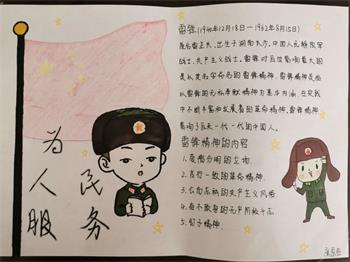 为人民服务
雷锋(1940年12月18日—1962年8月15日)
原名雷正兴,出生于湖南长沙,中国人民解放军
战士,共产主义战士,雷锋对后世影响最大的
是以其名字命名的雷锋精神,雷锋精神是
以雷锋的无私奉献精神为基本内涵,在实践
中不断丰富和发展着的革命精神,雷锋精神
影响了后来一代一代的中国人。
雷锋精神的内容
1.爱憎分明的立场
2.言行一致的革命精神
3.公而忘私的共产主义风格
4.奋不顾身的无产阶级斗志
5.钉子精神